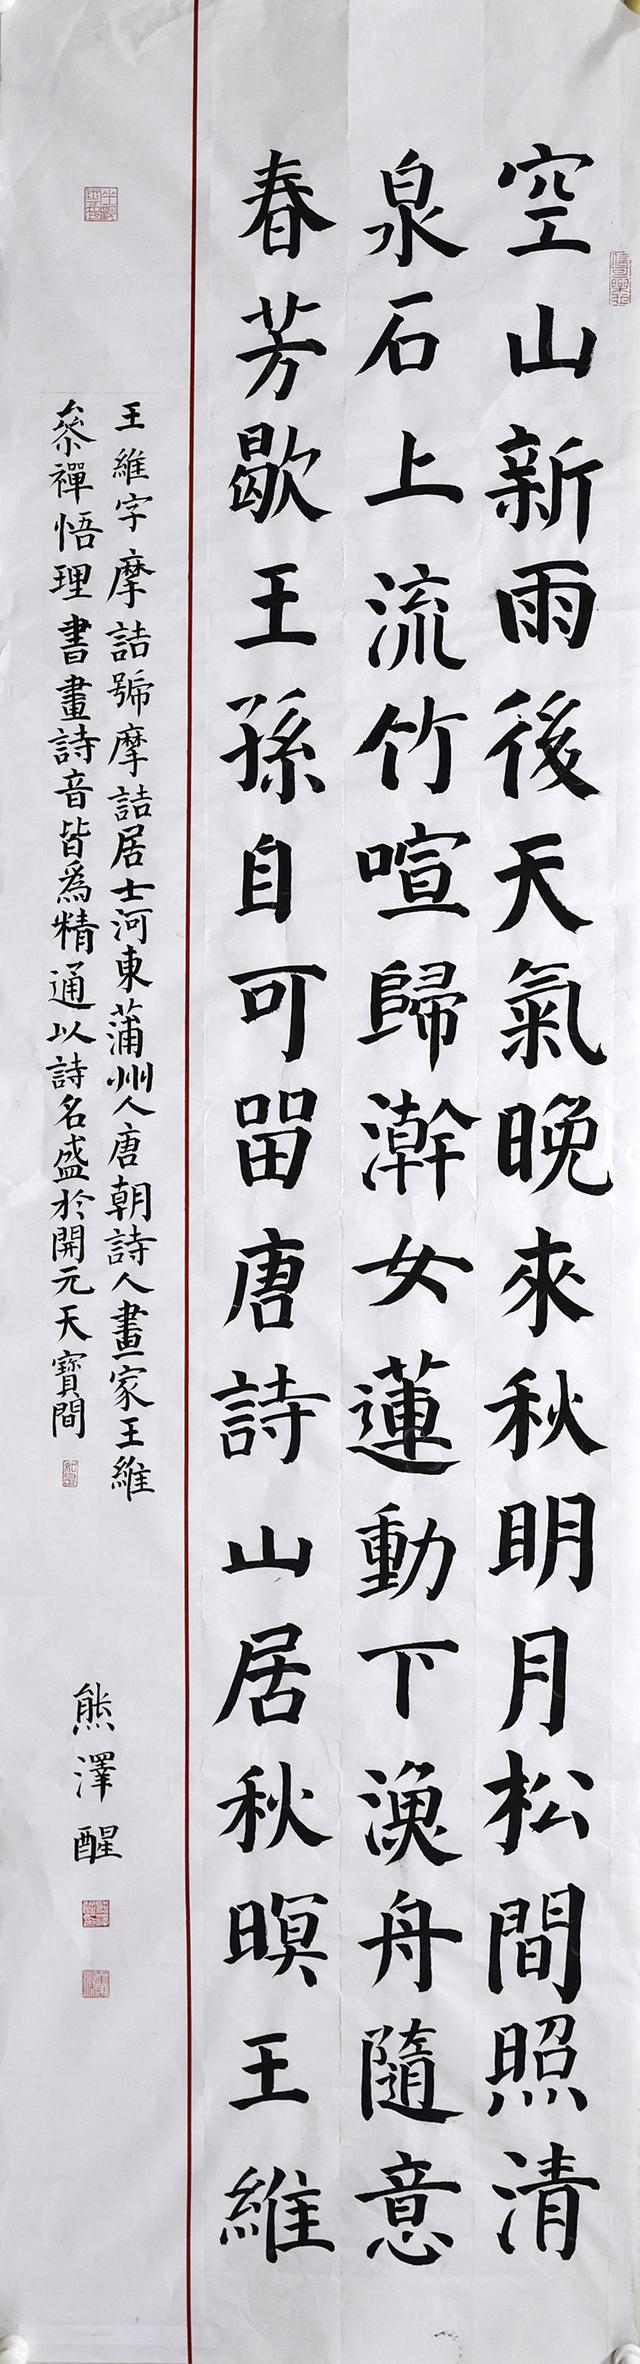 空山新雨後天氣晚來秋明月松間照清
泉石上流竹喧歸澣女蓮動下漁舟隨意
春芳歇王孫自可留唐詩山居秋暝王維
王維字摩詰號摩詰居士河東蒲州人唐朝詩人畫家王維
叅禪悟理書畫詩音皆為精通以詩名盛於開元天寶間
熊澤醒